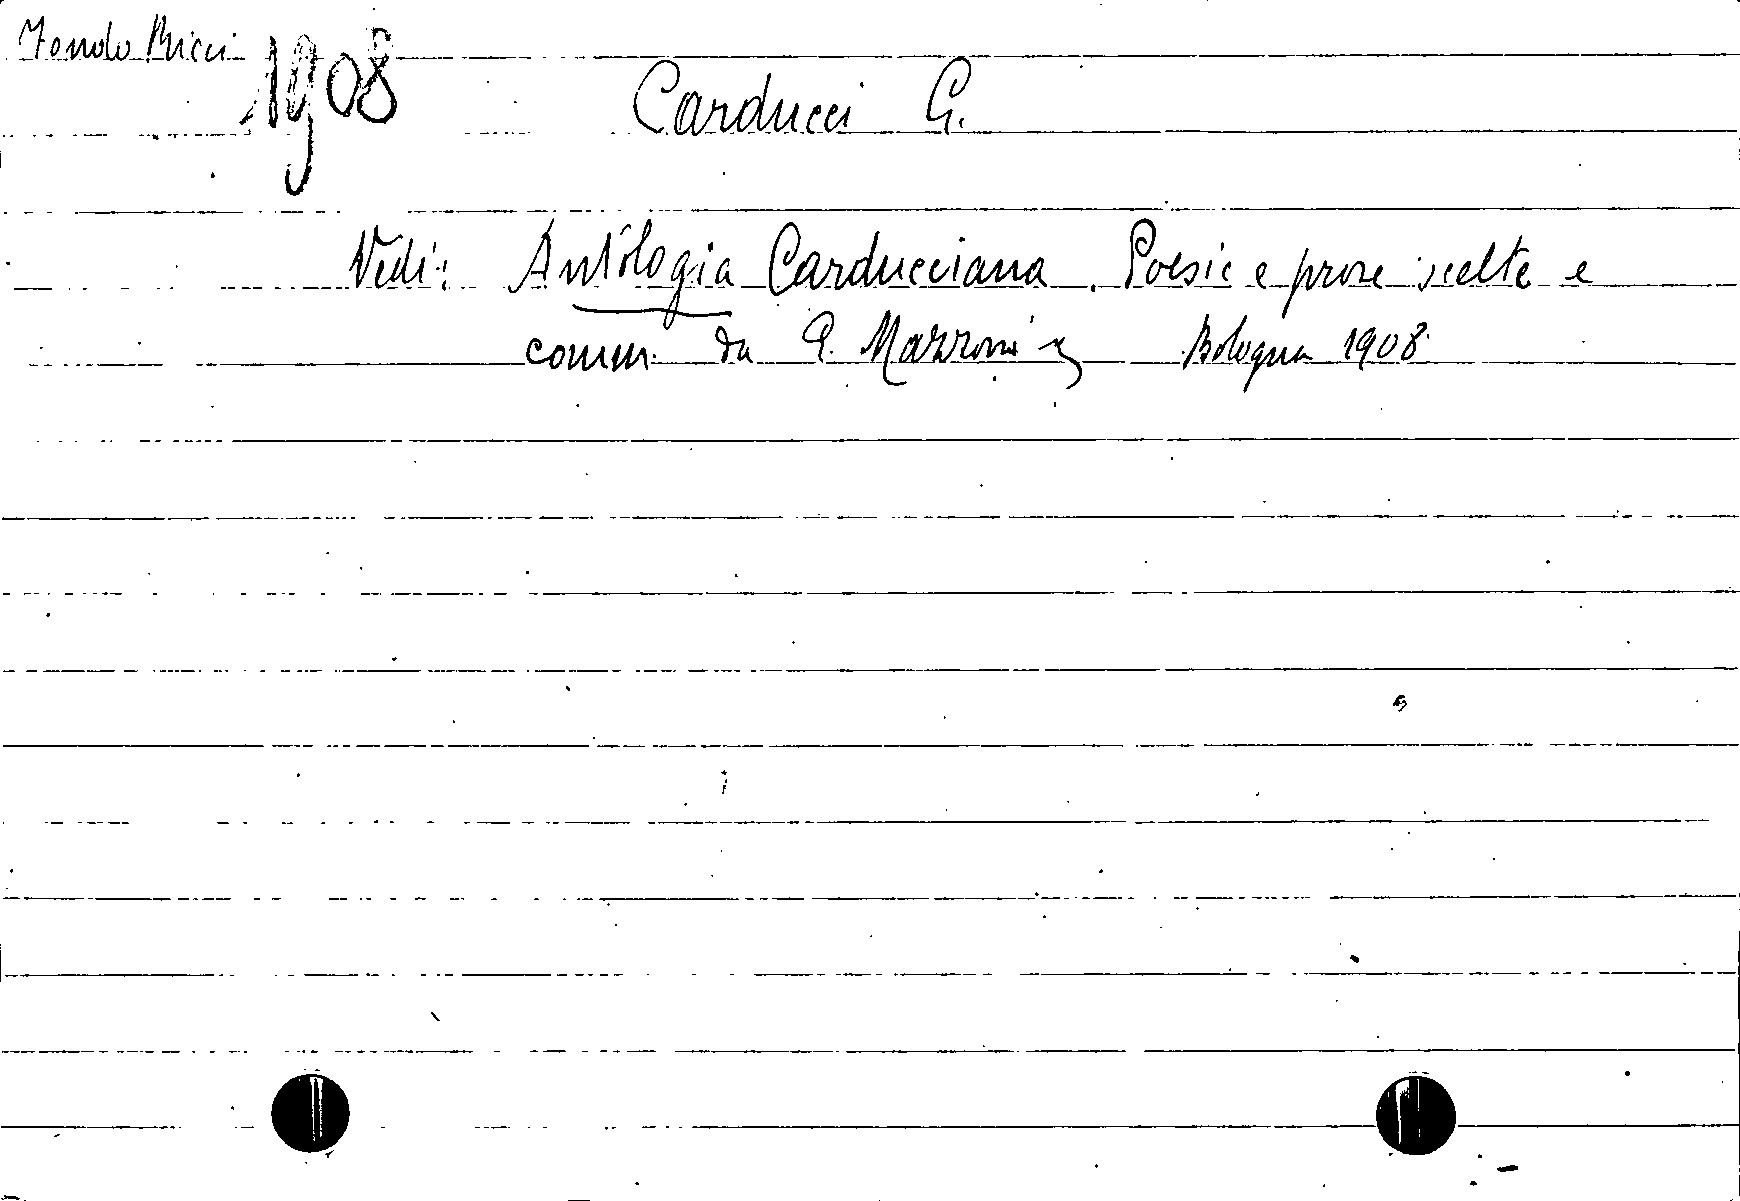 Fondo Ricci 1908
Carducci G.
Vedi: Antologia Carducciana. Poesie e prose scelte e
comm. da G. Mazzoni Bologna 1908